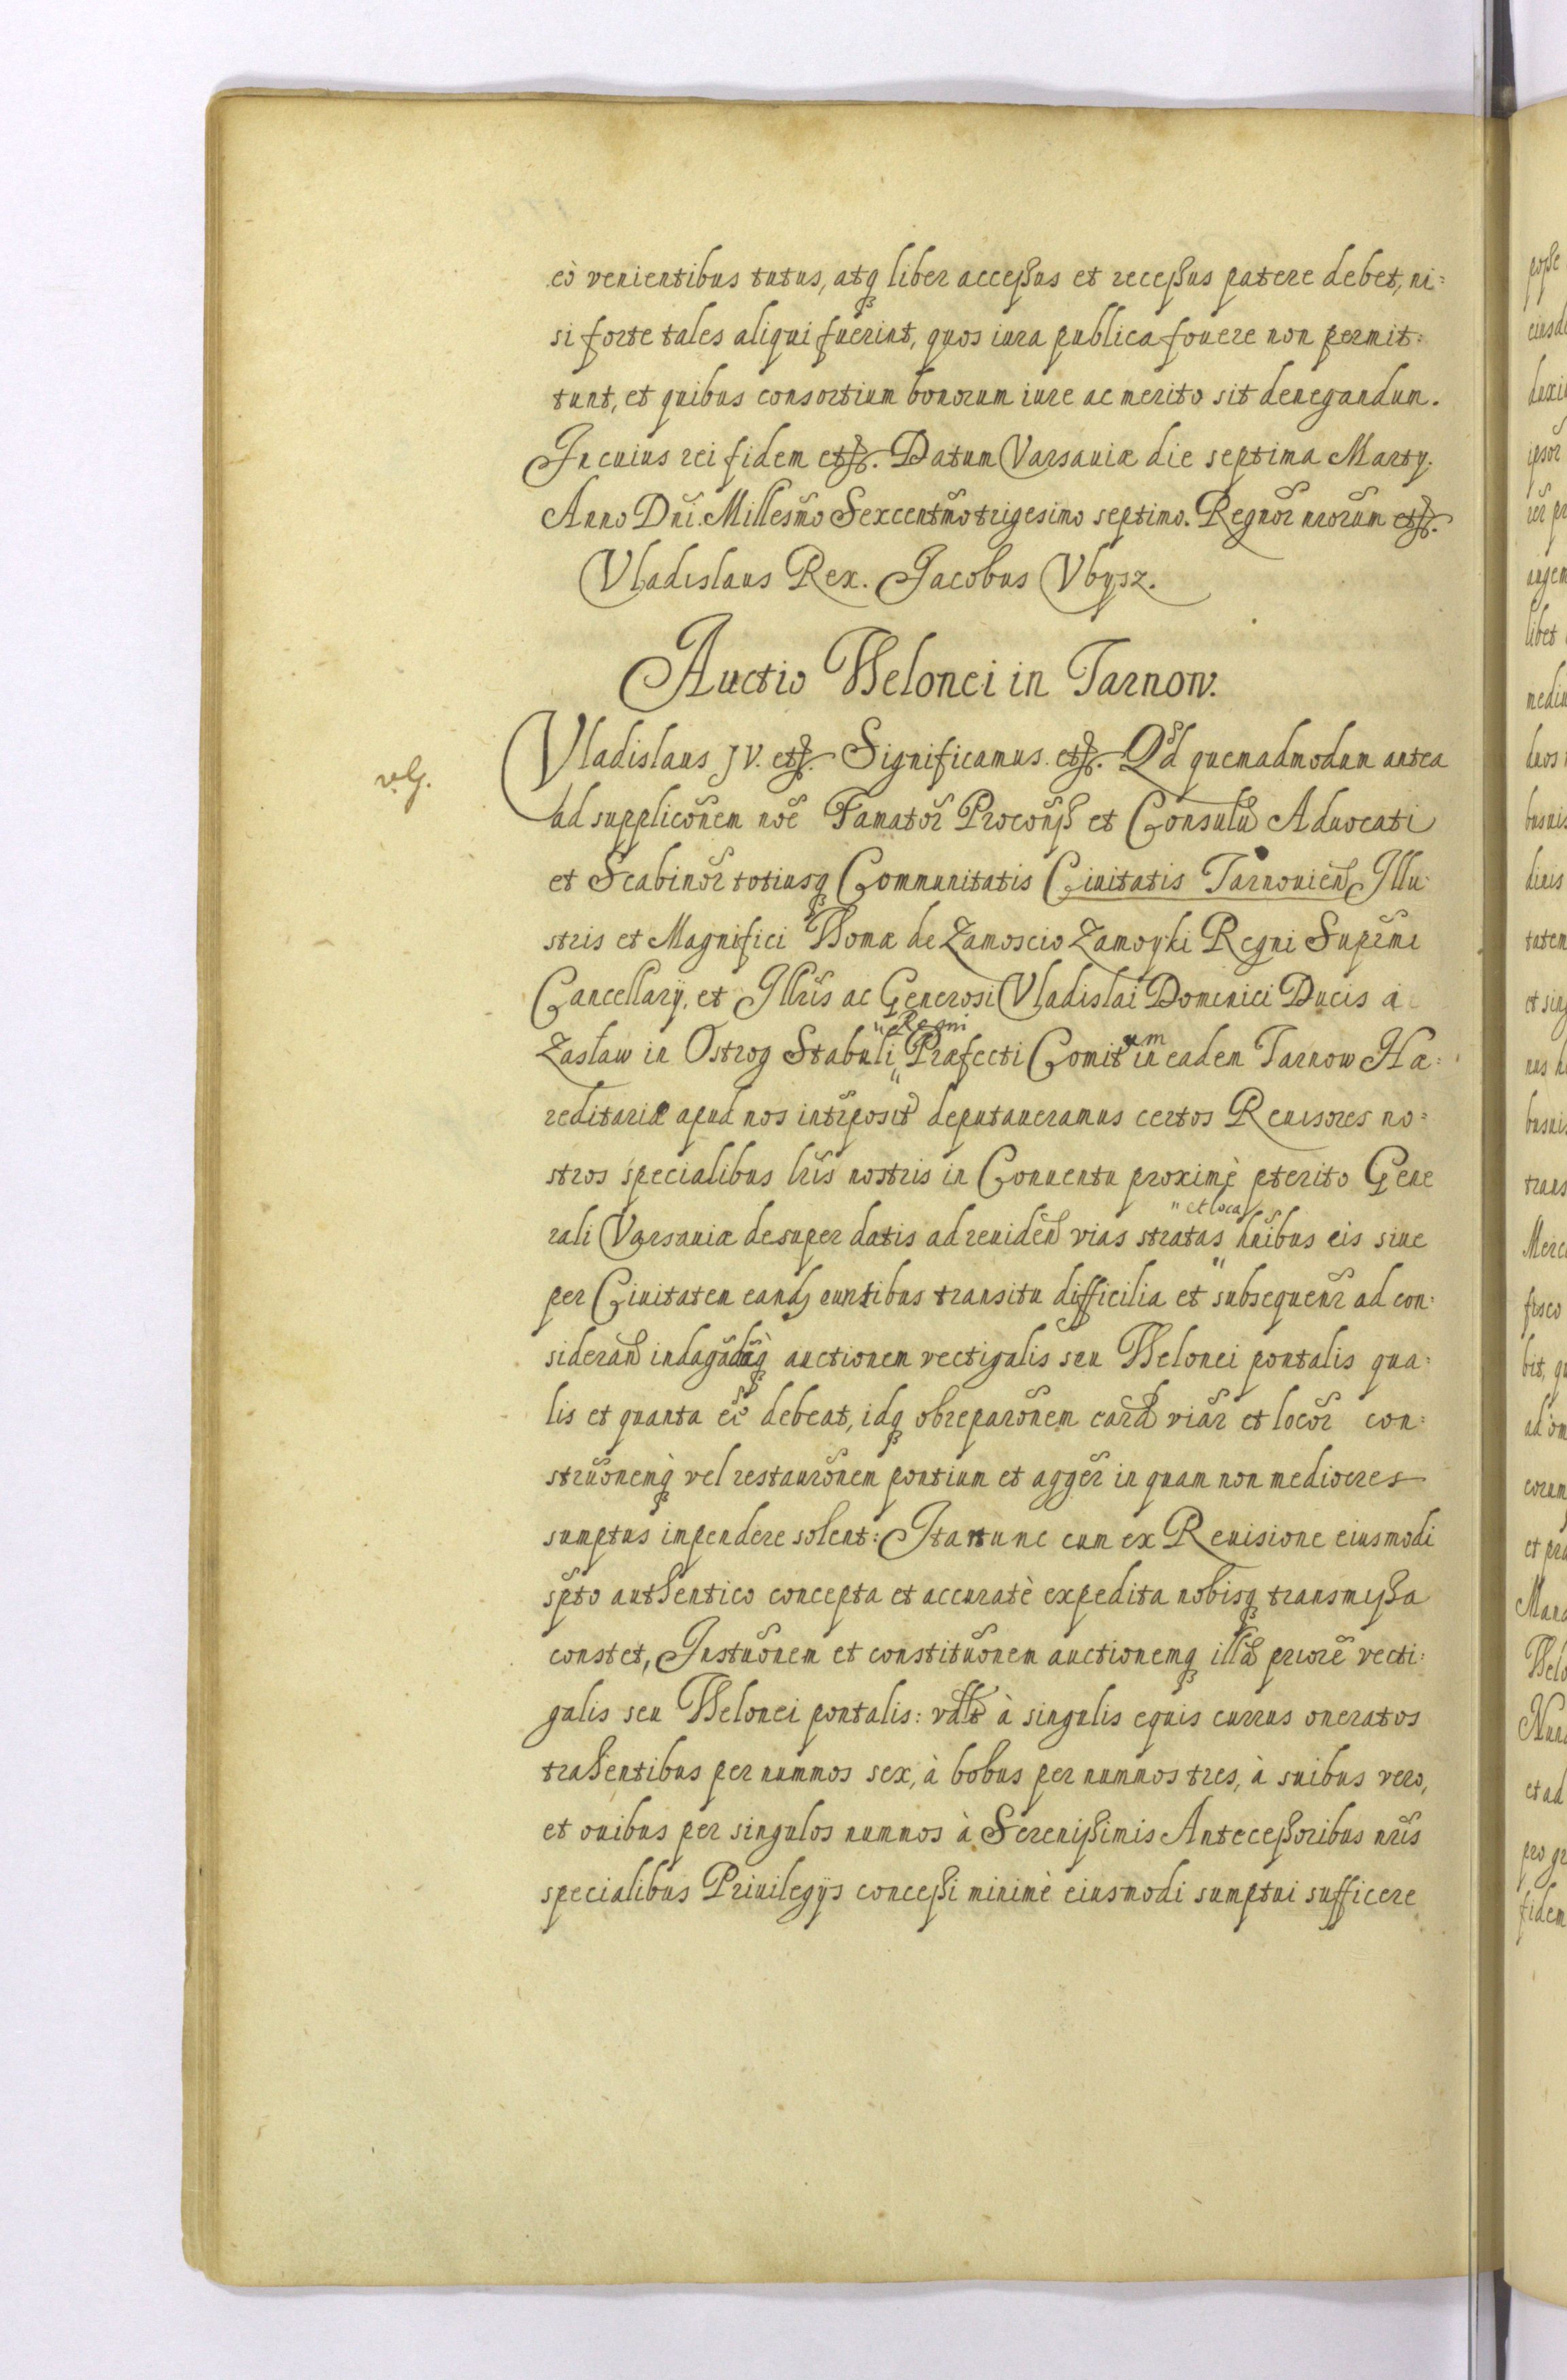 eò venientibus tutus, atq liber accessus et recessus patere debet, ni=
si forte tales aliqui fuerint, quos iura publica fouere non permit=
tunt, et quibus consortium bonorum iure ac merito sit denegandum.
In cuius rei fidem etc. Datum Varsauiæ die septima Marty.
Anno Dni. Millesmo Sexcentmo trigesimo septimo. Regnor nrorum etc.
Vladislaus Rex. Jacobus Vbysz.
Auctio Thelonei in Tarnow.
Vladislaus IV. etc. Significamus. etc. Qd quemadmodum antea
ad supplicõnem noẽ Famator Procons et Consulũ Aduocati
et Scabinor totiusq Communitatis Ciuitatis Tarnouien Illu=
stris et Magnifici Thomæ de Zamoscio Zamoyski Regni Supremi
Cancellarij. et Illris ac Generosi Vladislai Dominici Ducis a
"Regni
Zasław in Ostrog Stabuli" Præfecti Comitum in eadem Tarnow Hæ=
reditariæ apud nos intrposit deputaueramus certos Reuisores no=
stros specialibus lris nostris in Conuentu proximè pterito Gene
"et loca
rali Varsauiæ desuper datis ad reuiden vias stratas" huibus eis siue
per Ciuitatem eand euntibus transitu difficilia et subsequenr ad con=
sideran indagadaq auctionem vectigalis seu Thelonei pontalis qua=
lis et quanta eẽ debeat, idq ob reparõnem eard viar et locor con=
struõnemq vel restaurõnem pontium et agger in quam non mediocres
sumptus impendere solent: Ita nunc cum ex Reuisione eiusmodi
spto authentico concepta et accuratè expedita nobisq transmissa
constet, Instuõnem et constituõnem auctionemq illa priorẽ vecti=
galis seu Thelonei pontalis: vdlt à singulis equis currus oneratos
trahentibus per nummos sex, à bobus per nummos tres, à suibus vero,
et ouibus per singulos nummos à Serenissimis Antecessoribus nris
specialibus Priuilegijs concessi minimè eiusmodi sumptui sufficere